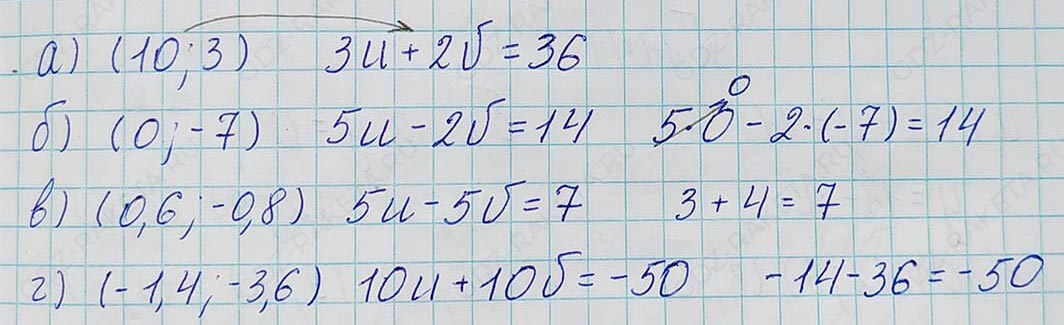 а) (10; 3) 3u + 2v = 36
б) (0; -7) 5u - 2v = 14 5·0 - 2·(-7) = 14
в) (0,6; -0,8) 5u - 5v = 7 3 + 4 = 7
г) (-1,4; -3,6) 10u + 10v = -50 -14 - 36 = -50